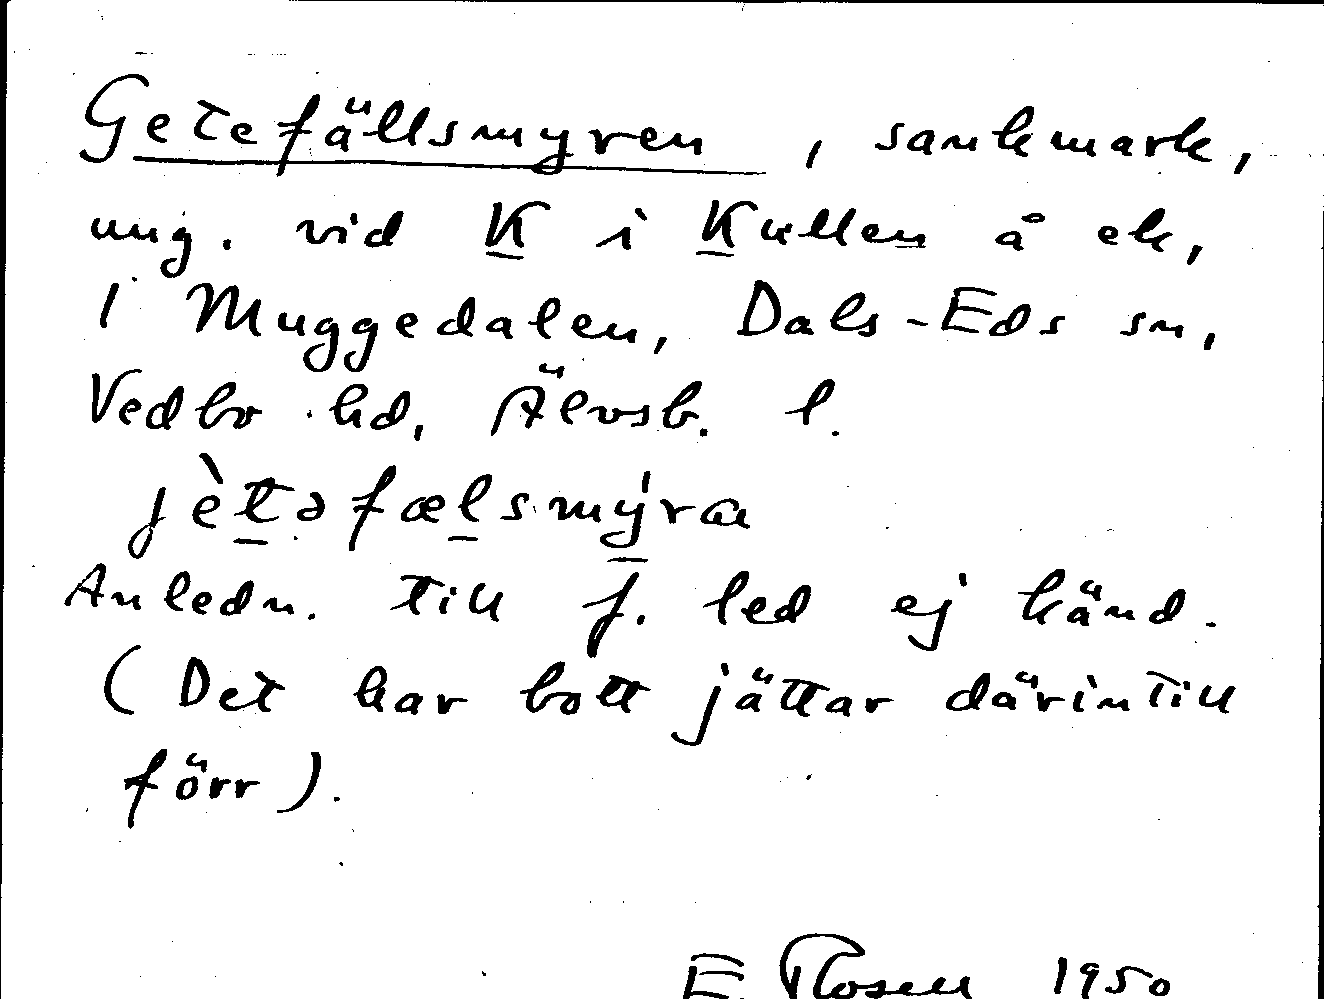 Getefällsmyren, sankmark,
ung. vid K i Kullen å ek,
i Muggedalen, Dals-Eds sn,
Vedbo hd, Älvsb. l.
jètəfælsmýra
Anledn. till f. led ej känd.
(Det har bott jättar därintill
förr).
E. Rosell 1950